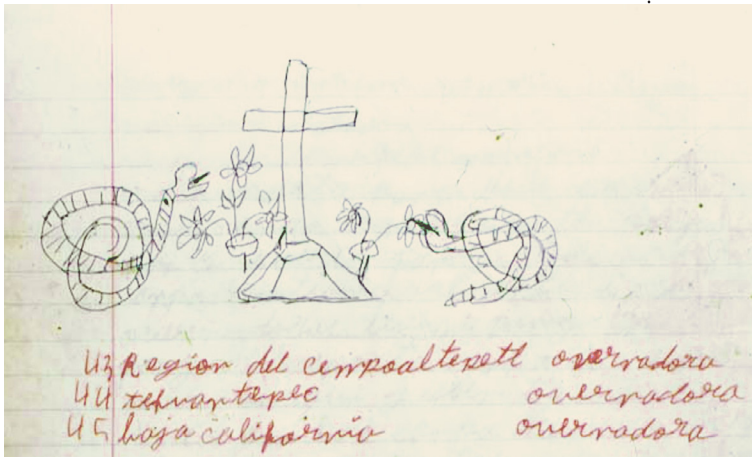 43 Region del cempoaltepetl overvadora
44 tehuantepec overvadora
45 baja california overvadora